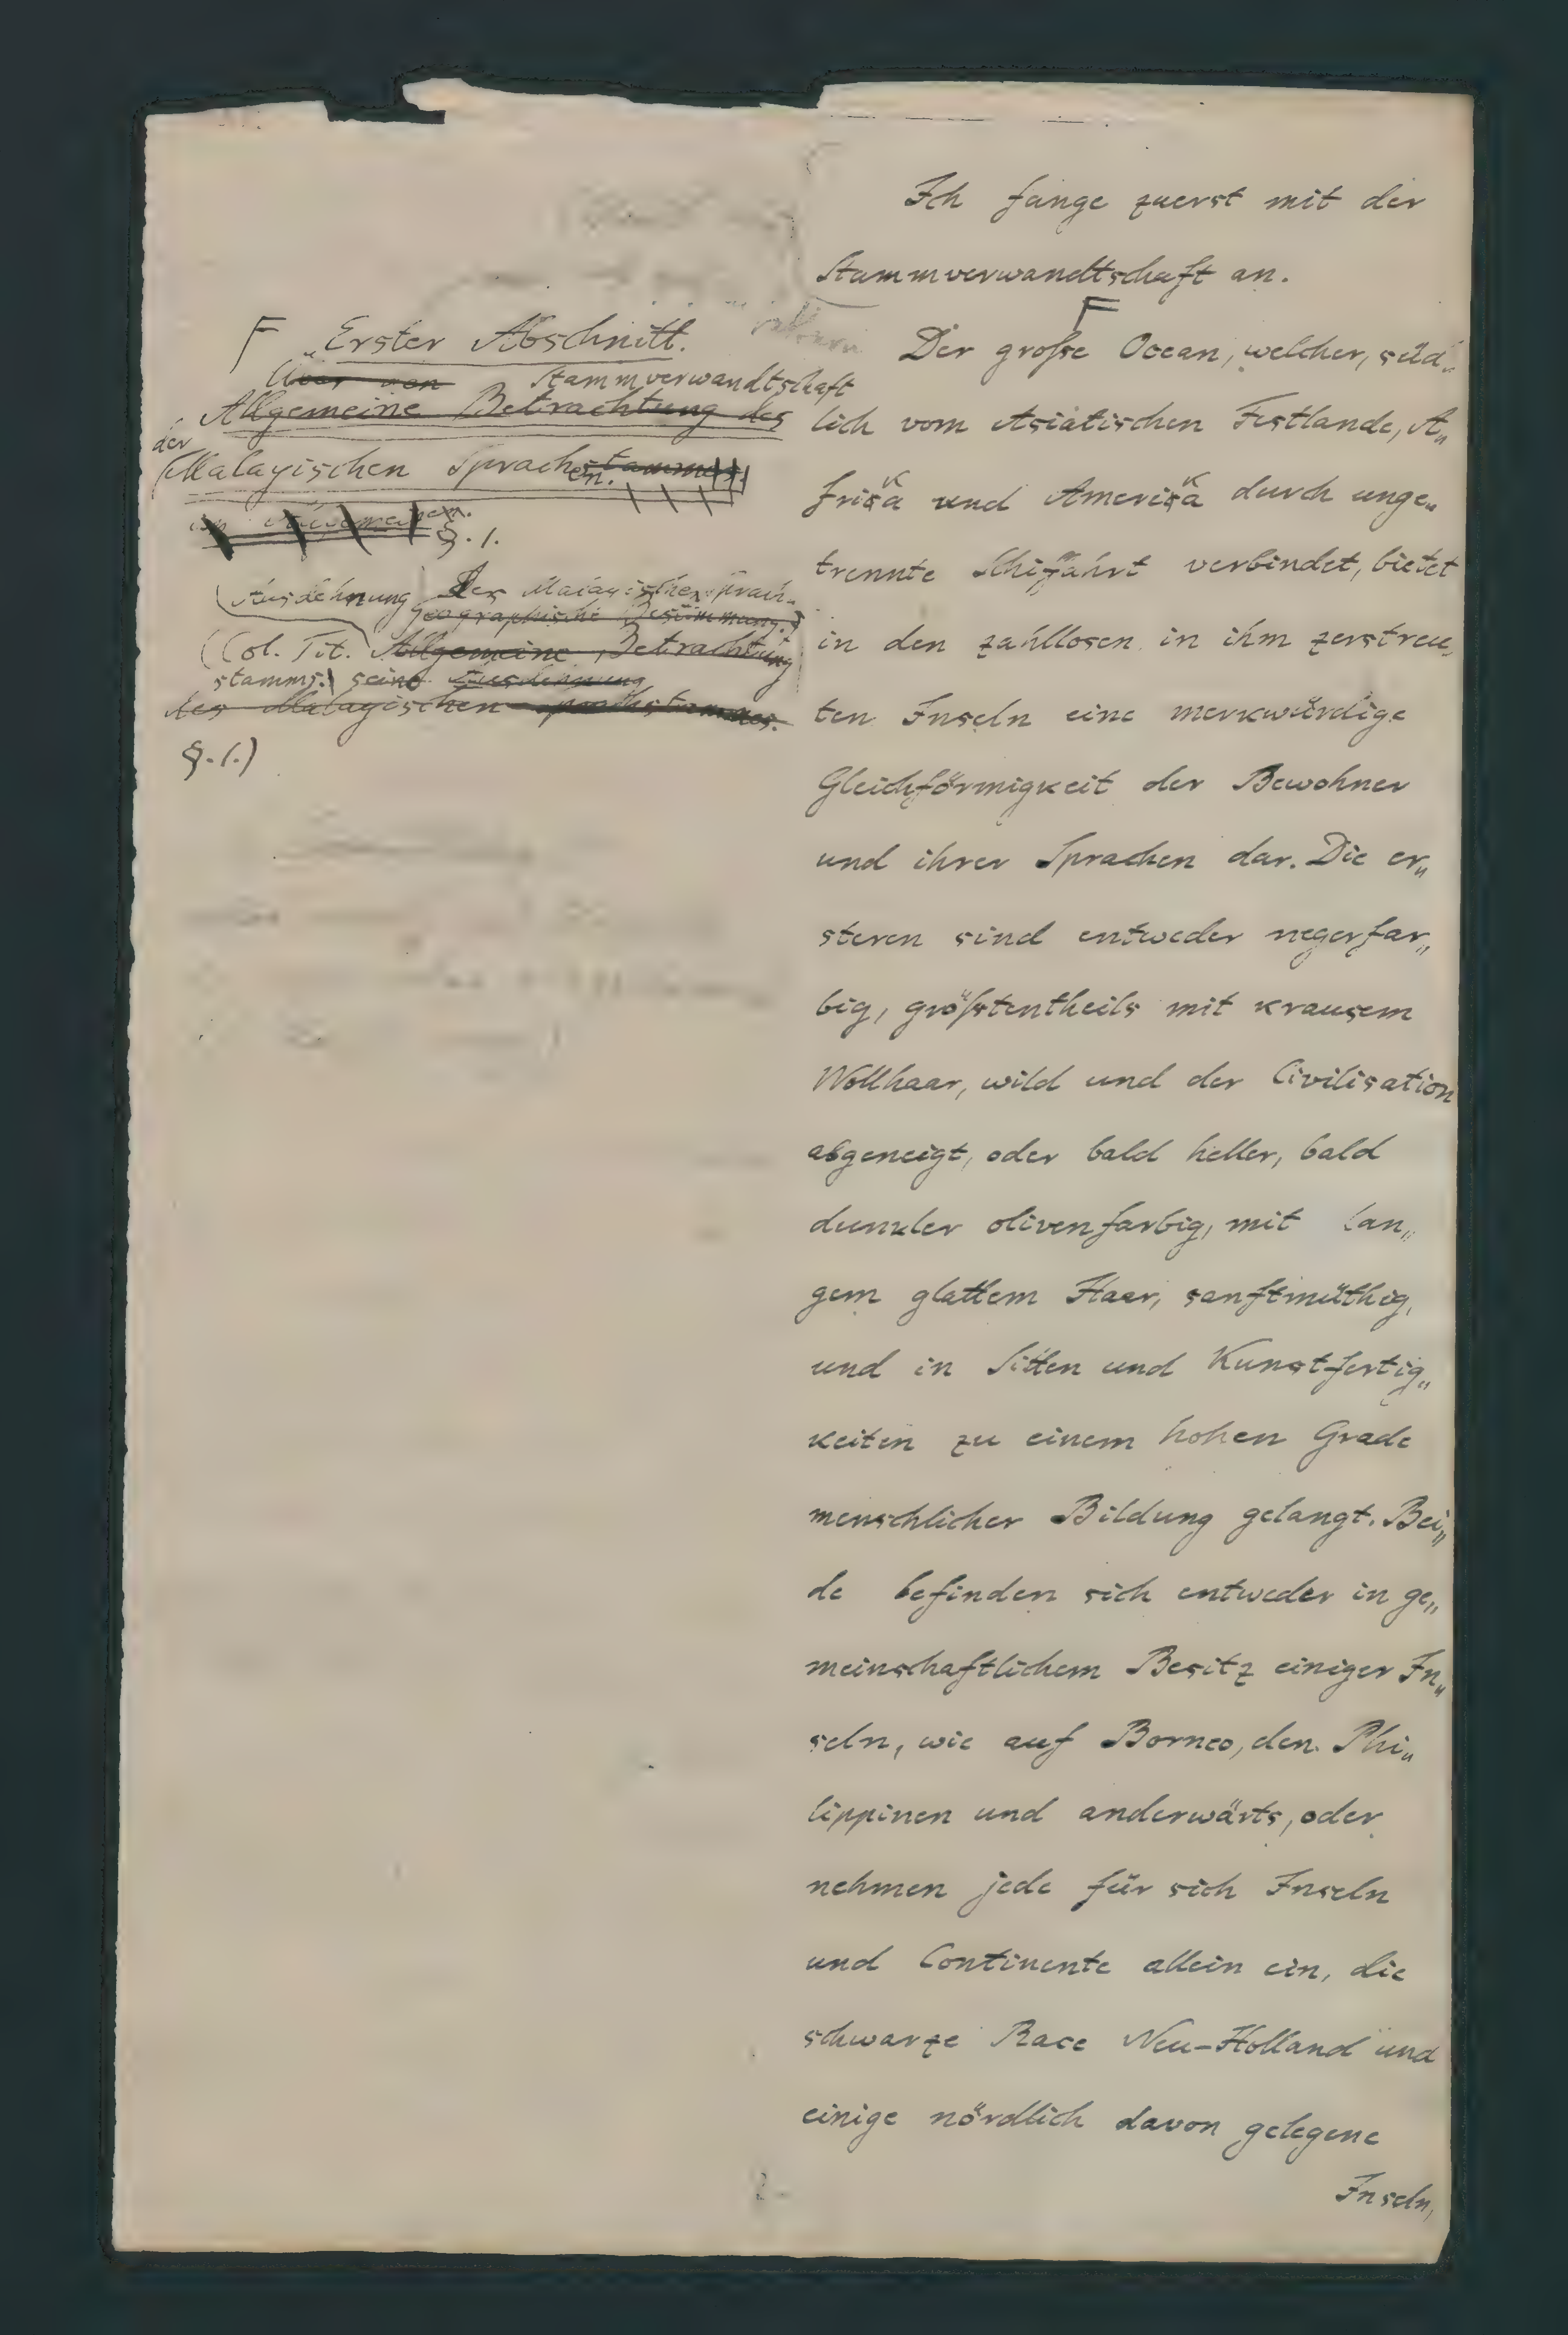 F Erster Abschnitt.
Stammverwandtschaft
Allgemeine Betrachtung des
der
Malayischen Sprachstammes
en.
im Allgemeinen.
§. 1.
Ausdehnung des Malayischen Sprach„
geographische Bestimmung.
(Col. Tit. Allgemeine Betrachtung
stamms. seine Ausdehnung
des Malayischen Sprachstammes.
§. 1.)
Ich fange zuerst mit der
Stammverwandtschaft an.
F
Der große Ocean, welcher, süd„
lich vom Asiatischen Festlande, A„
frika und Amerika durch unge„
trennte Schiffahrt verbindet, bietet
in den zahllosen in ihm zerstreu„
ten Inseln eine merkwürdige
Gleichförmigkeit der Bewohner
und ihrer Sprachen dar. Die er„
steren sind entweder negerfar„
big, größtentheils mit krausem
Wollhaar, wild und der Civilisation
abgeneigt, oder bald heller, bald
dunkler olivenfarbig, mit lan„
gem glattem Haar, sanftmüthig,
und in Sitten und Kunstfertig„
keiten zu einem hohen Grade
menschlicher Bildung gelangt. Bei„
de befinden sich entweder in ge„
meinschaftlichem Besitz einiger In„
seln, wie auf Borneo, den Phi„
lippinen und anderwärts, oder
nehmen jede für sich Inseln
und Continente allein ein, die
schwarze Race Neu-Holland und
einige nördlich davon gelegene
Inseln,